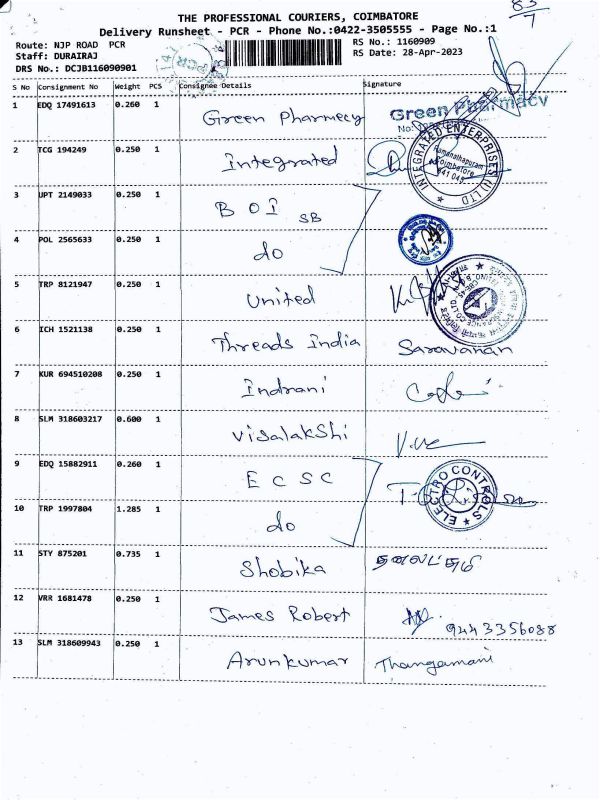 83/7
THE PROFESSIONAL COURIERS, COIMBATORE
Delivery Runsheet - PCR - Phone No.:0422-3505555 - Page No.:1
Route: NJP ROAD PCR RS No.: 1160909
Staff: DURAIRAJ RS Date: 28-Apr-2023
DRS No.: DCJB116090901
PCR
S No Consignment No Weight PCS Consignee Details Signature
1 EDQ 17491613 0.260 1 Green Pharmecy Green Pharmacy
2 TCG 194249 0.250 1 Integrated INTEGRATED ENTERPRISES (I) LTD Ramanathapuram Coimbatore 641 045
3 UPT 2149033 0.250 1 BOI SB
4 POL 2565633 0.250 1 do
5 TRP 8121947 0.250 1 United
6 ICH 1521138 0.250 1 Threads India Saravanan
7 KUR 694510208 0.250 1 Indrani
8 SLM 318603217 0.600 1 Visalakshi
9 EDQ 15882911 0.260 1 ECSC ELECTRO CONTROLS
10 TRP 1997804 1.285 1 do
11 STY 875201 0.735 1 Shobika தனலட்சுமி
12 VRR 1681478 0.250 1 James Robert 9443356088
13 SLM 318609943 0.250 1 Arunkumar Thangamani